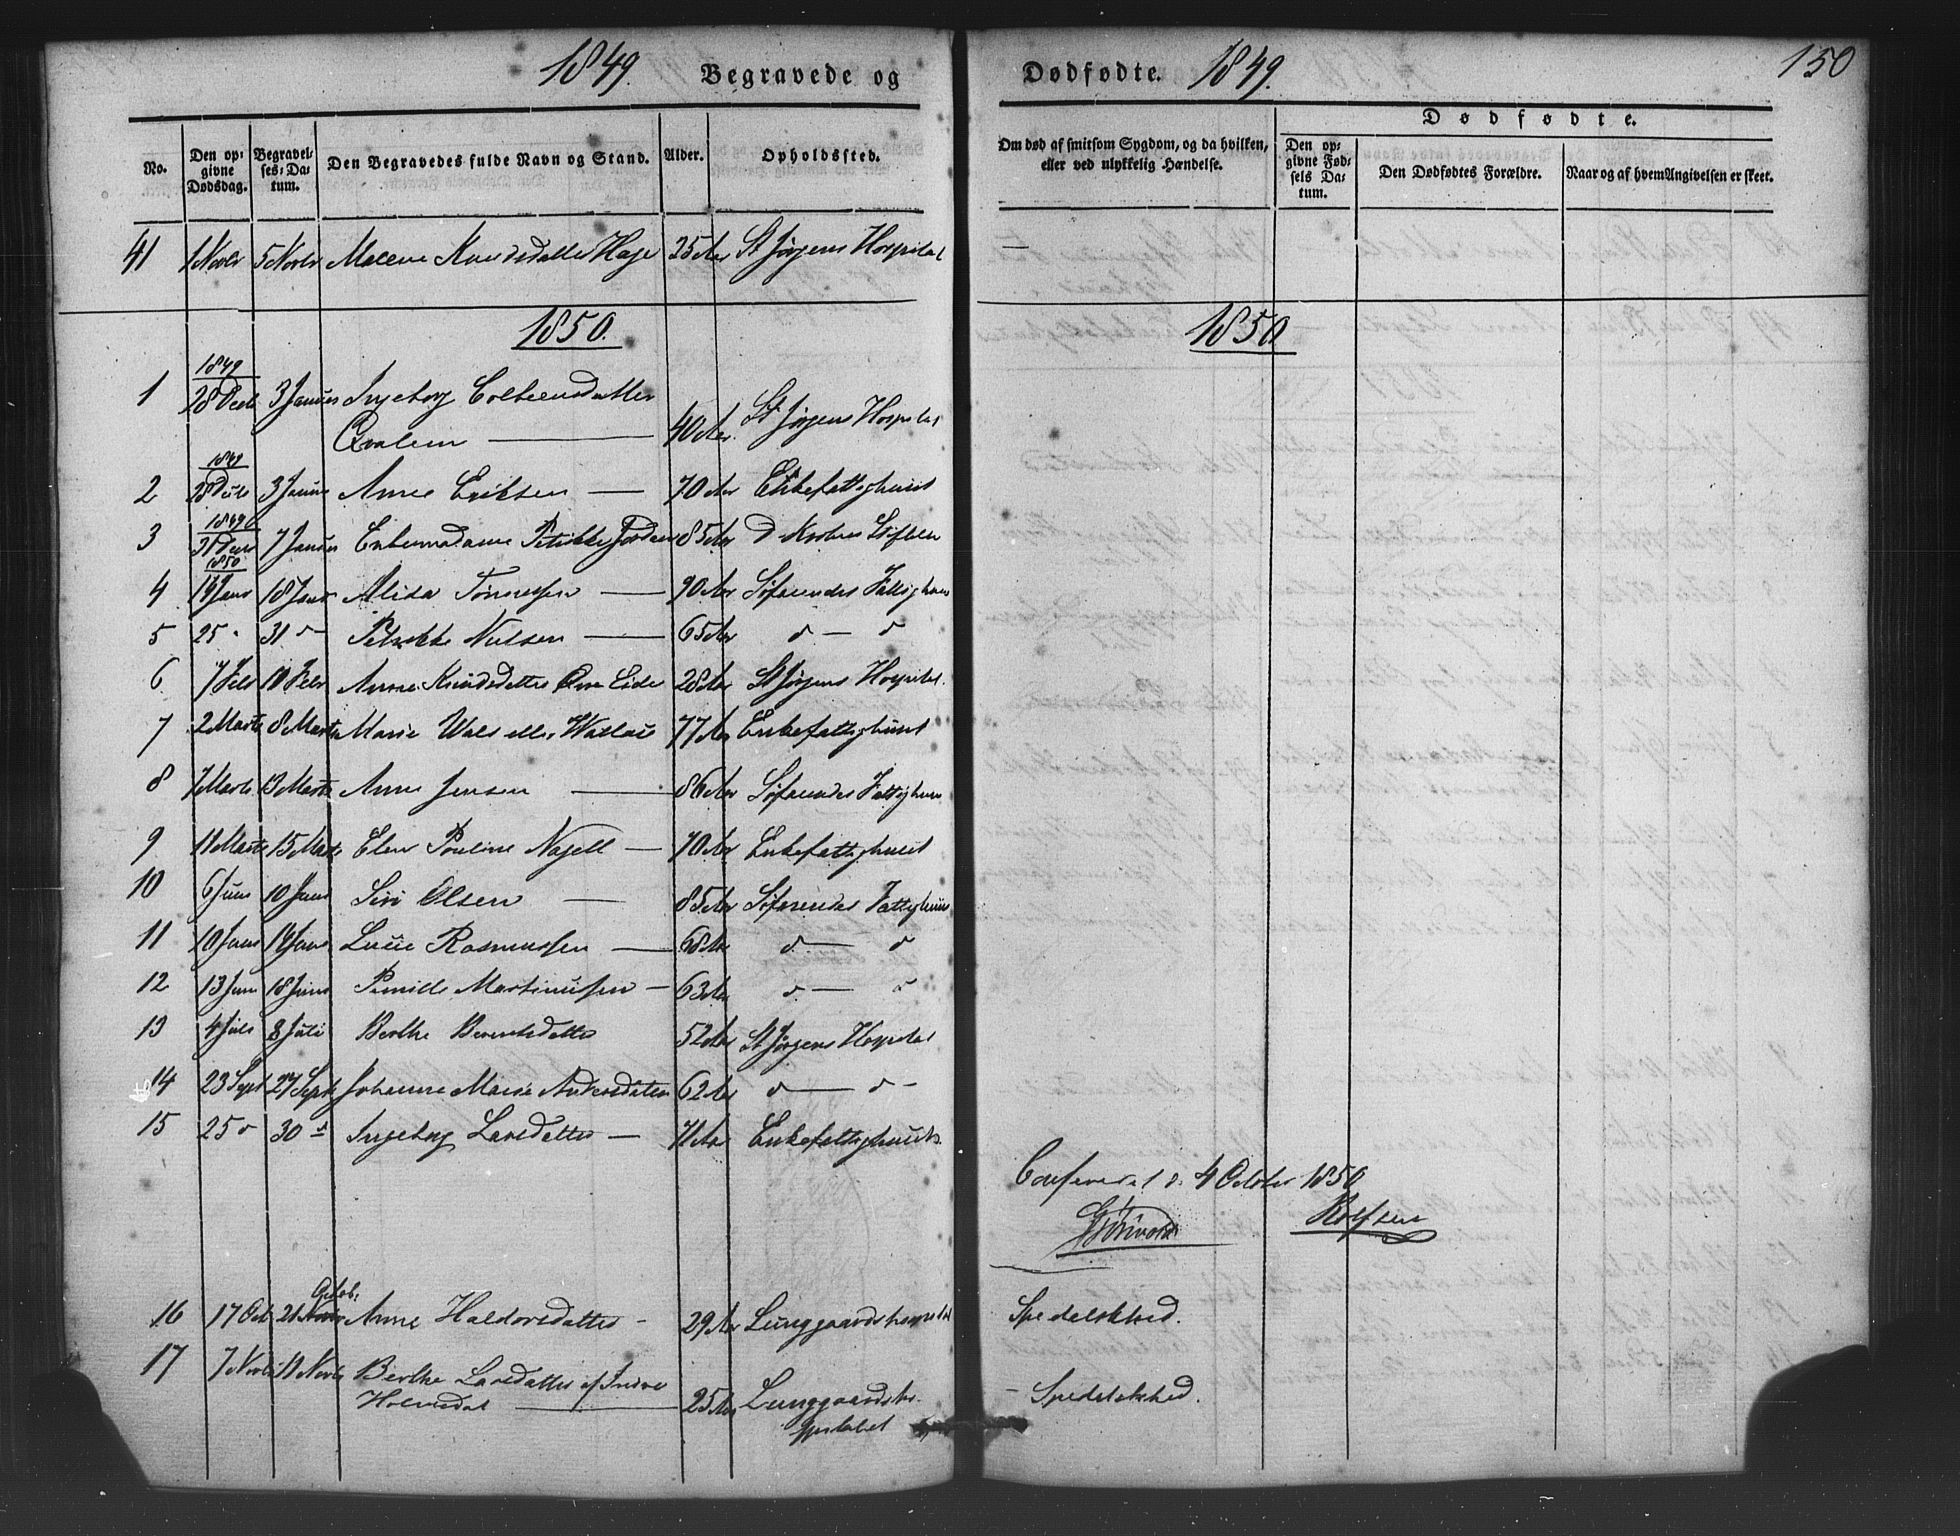 1849. Begravede og Dødfødte. 1849. 150
No. Den opgivne Dødsdag. Begravelses-Datum. Den Begravedes fulde Navn og Stand. Alder. Opholdssted. Om død af smitsom Sygdom, og da hvilken, eller ved ulykkelig Hændelse. Dødfødte. Den opgivne Fødsels Datum. Den Dødfødtes Forældre. Naar og af hvem Angivelsen er skeet.
41 1 Novbr 5 Novbr Malene Knudsdatter Hage 25 Aar St Jørgens Hospital —
1850. 1850
1849
1 28 Decb 3 Januar Ingeborg Colbeensdatter
Qvalem — 40 Aar. St Jørgens Hospital
1849
2 28 Decb 3 Januar Anne Eriksen — 70 Aar Enkefattighuset
1849
3 31 Decb 7 Januar Enkemadame Petrikke 85 Aar D. Krohns Stiftelse
1850
4 14 Janr 18 Janr Alida Tønnessen — 90 Aar Søfarendes Fattighuus
5 25 " 31 d Petrikke Nielsen — 65 Aar d — d
6 7 Febr 11 Febr Anne Knudsdatter Øvre Eide 28 Aar St Jørgens Hospital.
7 2 Marts 8 Marts Marie Wals eller Wallace 77 Aar Enkefattighuset
8 7 Marts 13 Marts Anne Jensen — 86 Aar Søfarendes Fattighuus
9 11 Marts 15 Marts Elen Pouline Nagell — 70 Aar Enkefattighuset
10 6 Juni 10 Juni Siri Olsen — 85 Aar Søfarendes Fattighuus
11 10 Juni 14 Juni Lucie Rasmussen — 68 Aar d — d
12 13 Juni 18 Juni Pernille Martinussen — 63 Aar d — d
13 4 Juli 8 Juli Berthe Berentsdatter 52 Aar St Jørgens Hospital
14 23 Sept 27 Sept Johanne Marie Andersdatter 62 Aar d — d —
15 25 d 30 d Ingeborg Larsdatter — 71 Aar Enkefattighuuset.
Confereret d. 4 October 1850
Rolfsen
Octob.
16 17 Oct 21 Anne Haldorsdatter - 29 Aar Lunggaardshospitalet Spedalskhed.
17 7 Novbr 11 Novbr Berthe Larsdatter af Indre
Holmedal — 25 Aar Lunggaardsho-
spitalet - Spedalskhed.